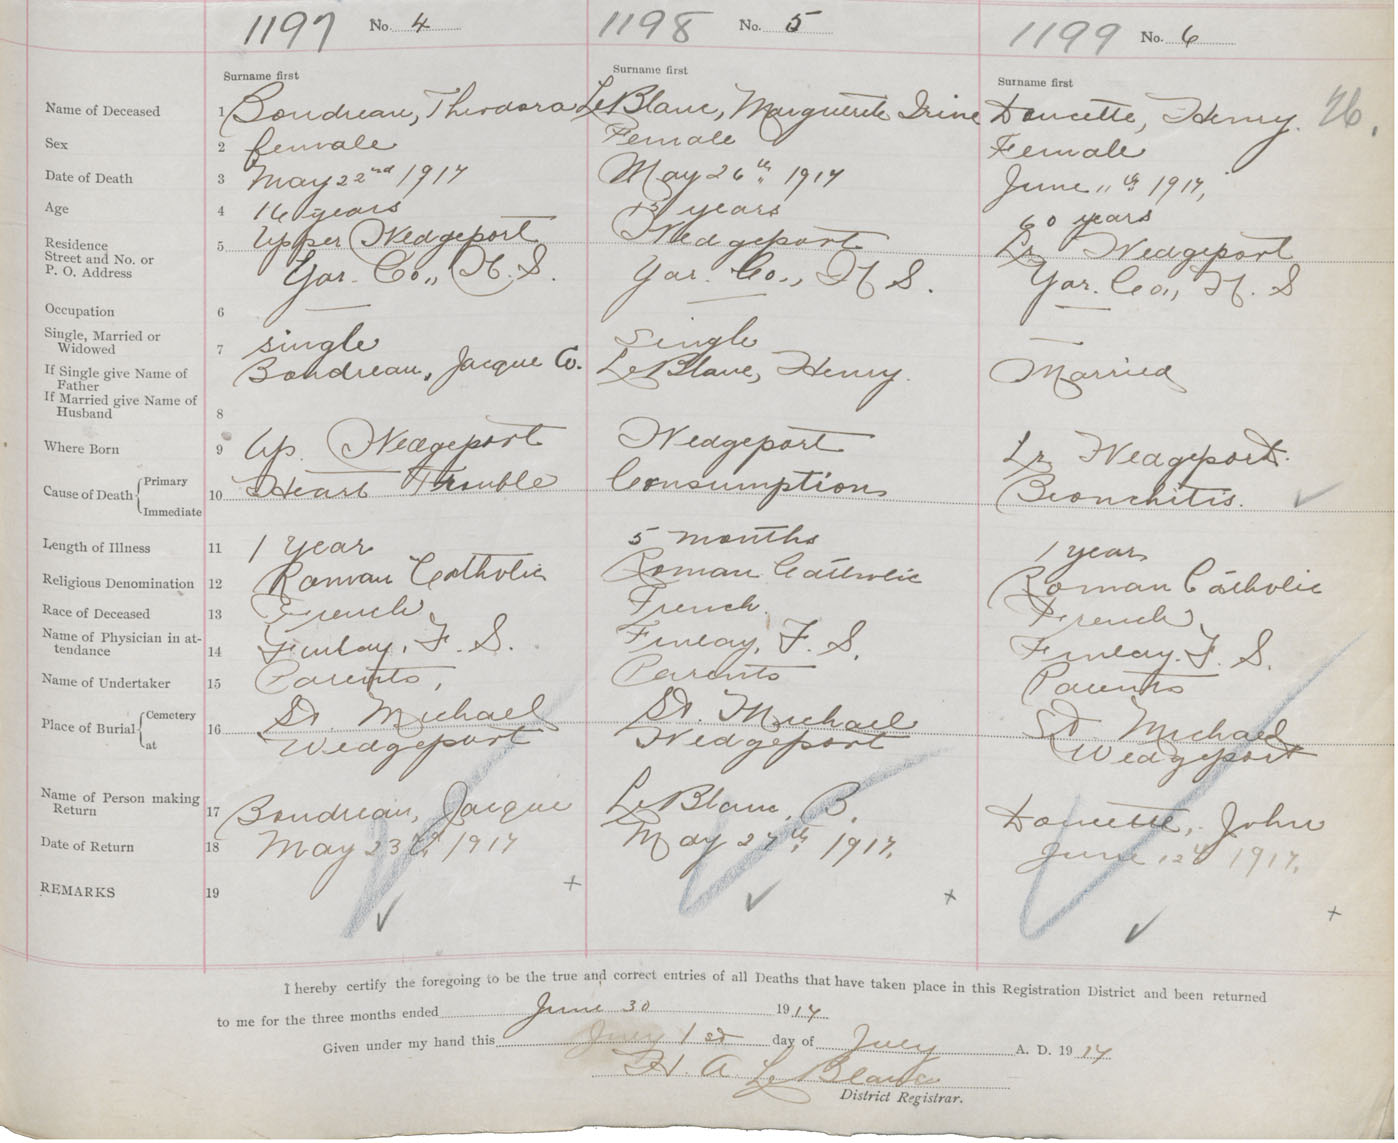 1197 No. 4 1198 No. 5 1199 No. 6
Surname first Surname first Surname first
Name of Deceased 1 Boudreau, Theodora LeBlanc, Marguerite Irine Doucette, Henry. 76.
Sex 2 female Female Female
Date of Death 3 May 22nd 1917 May 26th, 1917 June 11th 1917,
Age 4 16 years 15 years 60 years
Residence 5 Upper Wedgeport Wedgeport Lr Wedgeport
Street and No. or
P. O. Address Yar. Co., N. S. Yar. Co., N. S. Yar. Co., N. S
Occupation 6 — — —
Single, Married or
Widowed 7 single Single —
If Single give Name of
Father Boudreau, Jacque Co. LeBlanc, Henry. Married
If Married give Name of
Husband 8
Where Born 9 Up. Wedgeport Wedgeport Lr Wedgeport.
Cause of Death { Primary
Immediate 10 Heart Trouble Consumption Bronchitis.
Length of Illness 11 1 year 5 months 1 year
Religious Denomination 12 Roman Catholic Roman Catholic Roman Catholic
Race of Deceased 13 French French. French
Name of Physician in at-
tendance 14 Finlay, F. S. Finlay, F. S. Finlay. F. S.
Name of Undertaker 15 Parents, Parents Parents
Place of Burial { Cemetery 16 St. Michael St. Michael St. Michael
at Wedgeport Wedgeport Wedgeport
Name of Person making
Return 17 Boudreau, Jacque LeBlanc, B. Doucette, John
Date of Return 18 May 23rd 1917 May 27th, 1917. June 12th 1917.
REMARKS 19 + + +
I hereby certify the foregoing to be the true and correct entries of all Deaths that have taken place in this Registration District and been returned
to me for the three months ended June 30 1917
Given under my hand this 1st day of July A. D. 1917
H. A LeBlanc
District Registrar.